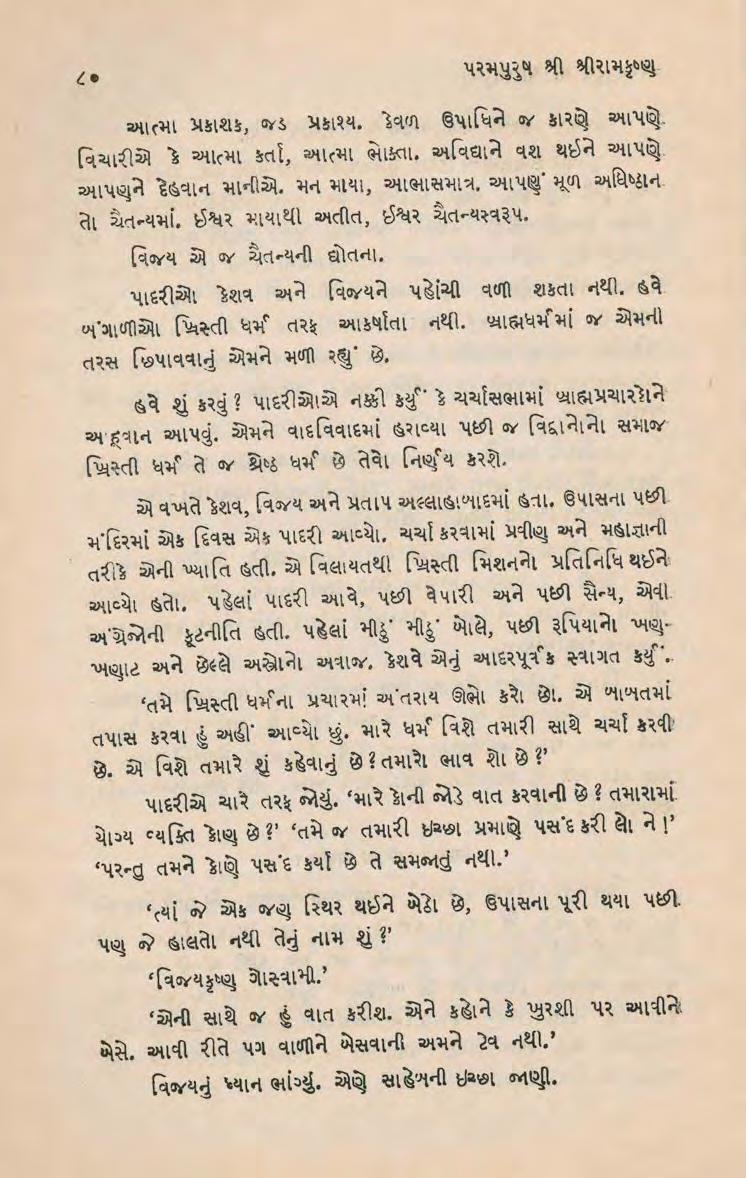 ૮૦
પરમપુરુષ શ્રી શ્રીરામકૃષ્ણ
આત્મા પ્રકાશક, જડ પ્રકાશ્ય. કેવળ ઉપાધિને જ કારણે આપણે
વિચારીએ કે આત્મા કર્તા, આત્મા ભોક્તા. અવિદ્યાને વશ થઈને આપણે
આપણને દેહવાન માનીએ. મન માયા, આભાસમાત્ર. આપણું મૂળ અધિષ્ઠાન
તો ચૈતન્યમાં. ઈશ્વર માયાથી અતીત, ઈશ્વર ચૈતન્યસ્વરૂપ.
વિજય એ જ ચૈતન્યની દ્યોતના.
પાદરીઓ કેશવ અને વિજયને પહોંચી વળી શકતા નથી. હવે
બંગાળીઓ ખ્રિસ્તી ધર્મ તરફ આકર્ષાતા નથી. બ્રાહ્મધર્મમાં જ એમની
તરસ છિપાવવાનું એમને મળી રહ્યું છે.
હવે શું કરવું? પાદરીઓએ નક્કી કર્યું કે ચર્ચાસભામાં બ્રાહ્મપ્રચારકોને
આહ્વાન આપવું. એમને વાદવિવાદમાં હરાવ્યા પછી જ વિદ્વાનોનો સમાજ
ખ્રિસ્તી ધર્મ તે જ શ્રેષ્ઠ ધર્મ છે તેવો નિર્ણય કરશે.
એ વખતે કેશવ, વિજય અને પ્રતાપ અલ્લાહાબાદમાં હતા. ઉપાસના પછી
મંદિરમાં એક દિવસ એક પાદરી આવ્યો. ચર્ચા કરવામાં પ્રવીણ અને મહાજ્ઞાની
તરીકે એની ખ્યાતિ હતી. એ વિલાયતથી ખ્રિસ્તી મિશનનો પ્રતિનિધિ થઈને
આવ્યો હતો. પહેલાં પાદરી આવે, પછી વેપારી અને પછી સૈન્ય, એવી
અંગ્રેજોની કૂટનીતિ હતી. પહેલાં મીઠું મીઠું બોલે, પછી રૂપિયાનો ખણ-
ખણાટ અને છેલ્લે અસ્રોનો અવાજ. કેશવે એનું આદરપૂર્વક સ્વાગત કર્યું.
‘તમે ખ્રિસ્તી ધર્મના પ્રચારમાં અંતરાય ઊભો કરો છો. એ બાબતમાં
તપાસ કરવા હું અહીં આવ્યો છું. મારે ધર્મ વિશે તમારી સાથે ચર્ચા કરવી
છે. એ વિશે તમારે શું કહેવાનું છે? તમારો ભાવ શો છે?’
પાદરીએ ચારે તરફ જોયું. ‘મારે કોની જોડે વાત કરવાની છે? તમારામાં
યોગ્ય વ્યક્તિ કોણ છે?’ ‘તમે જ તમારી ઇચ્છા પ્રમાણે પસંદ કરી લો ને!’
‘પરન્તુ તમને કોણે પસંદ કર્યા છે તે સમજાતું નથી.’
‘ત્યાં જે એક જણ સ્થિર થઈને બેઠો છે, ઉપાસના પૂરી થયા પછી
પણ જે હાલતો નથી તેનું નામ શું?’
‘વિજયકૃષ્ણ ગોસ્વામી.’
‘એની સાથે જ હું વાત કરીશ. એને કહોને કે ખુરશી પર આવીને
બેસે. આવી રીતે પગ વાળીને બેસવાની અમને ટેવ નથી.’
વિજયનું ધ્યાન ભાંગ્યું. એણે સાહેબની ઇચ્છા જાણી.